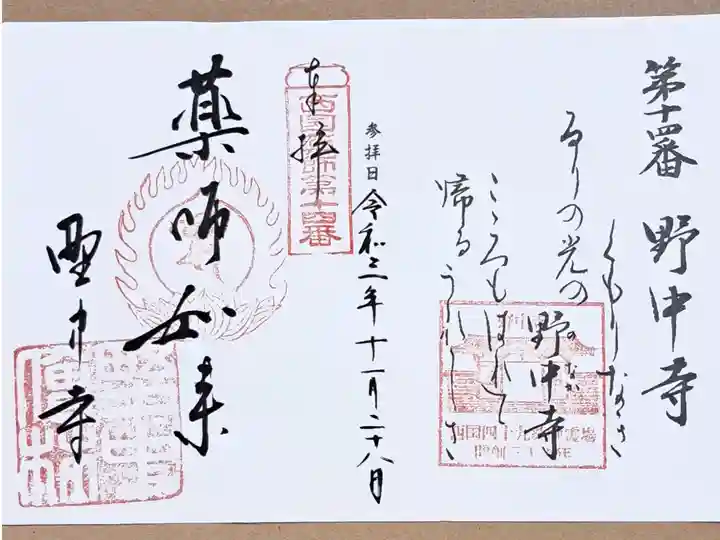 第十四番 野中寺
くもりなき
るりの光の野中寺
のなか
こゝろもはれて
帰るうれしさ
参拝日 令和三年十一月二十八日
奉拝
西国薬師第十四番
薬師如来
野中寺